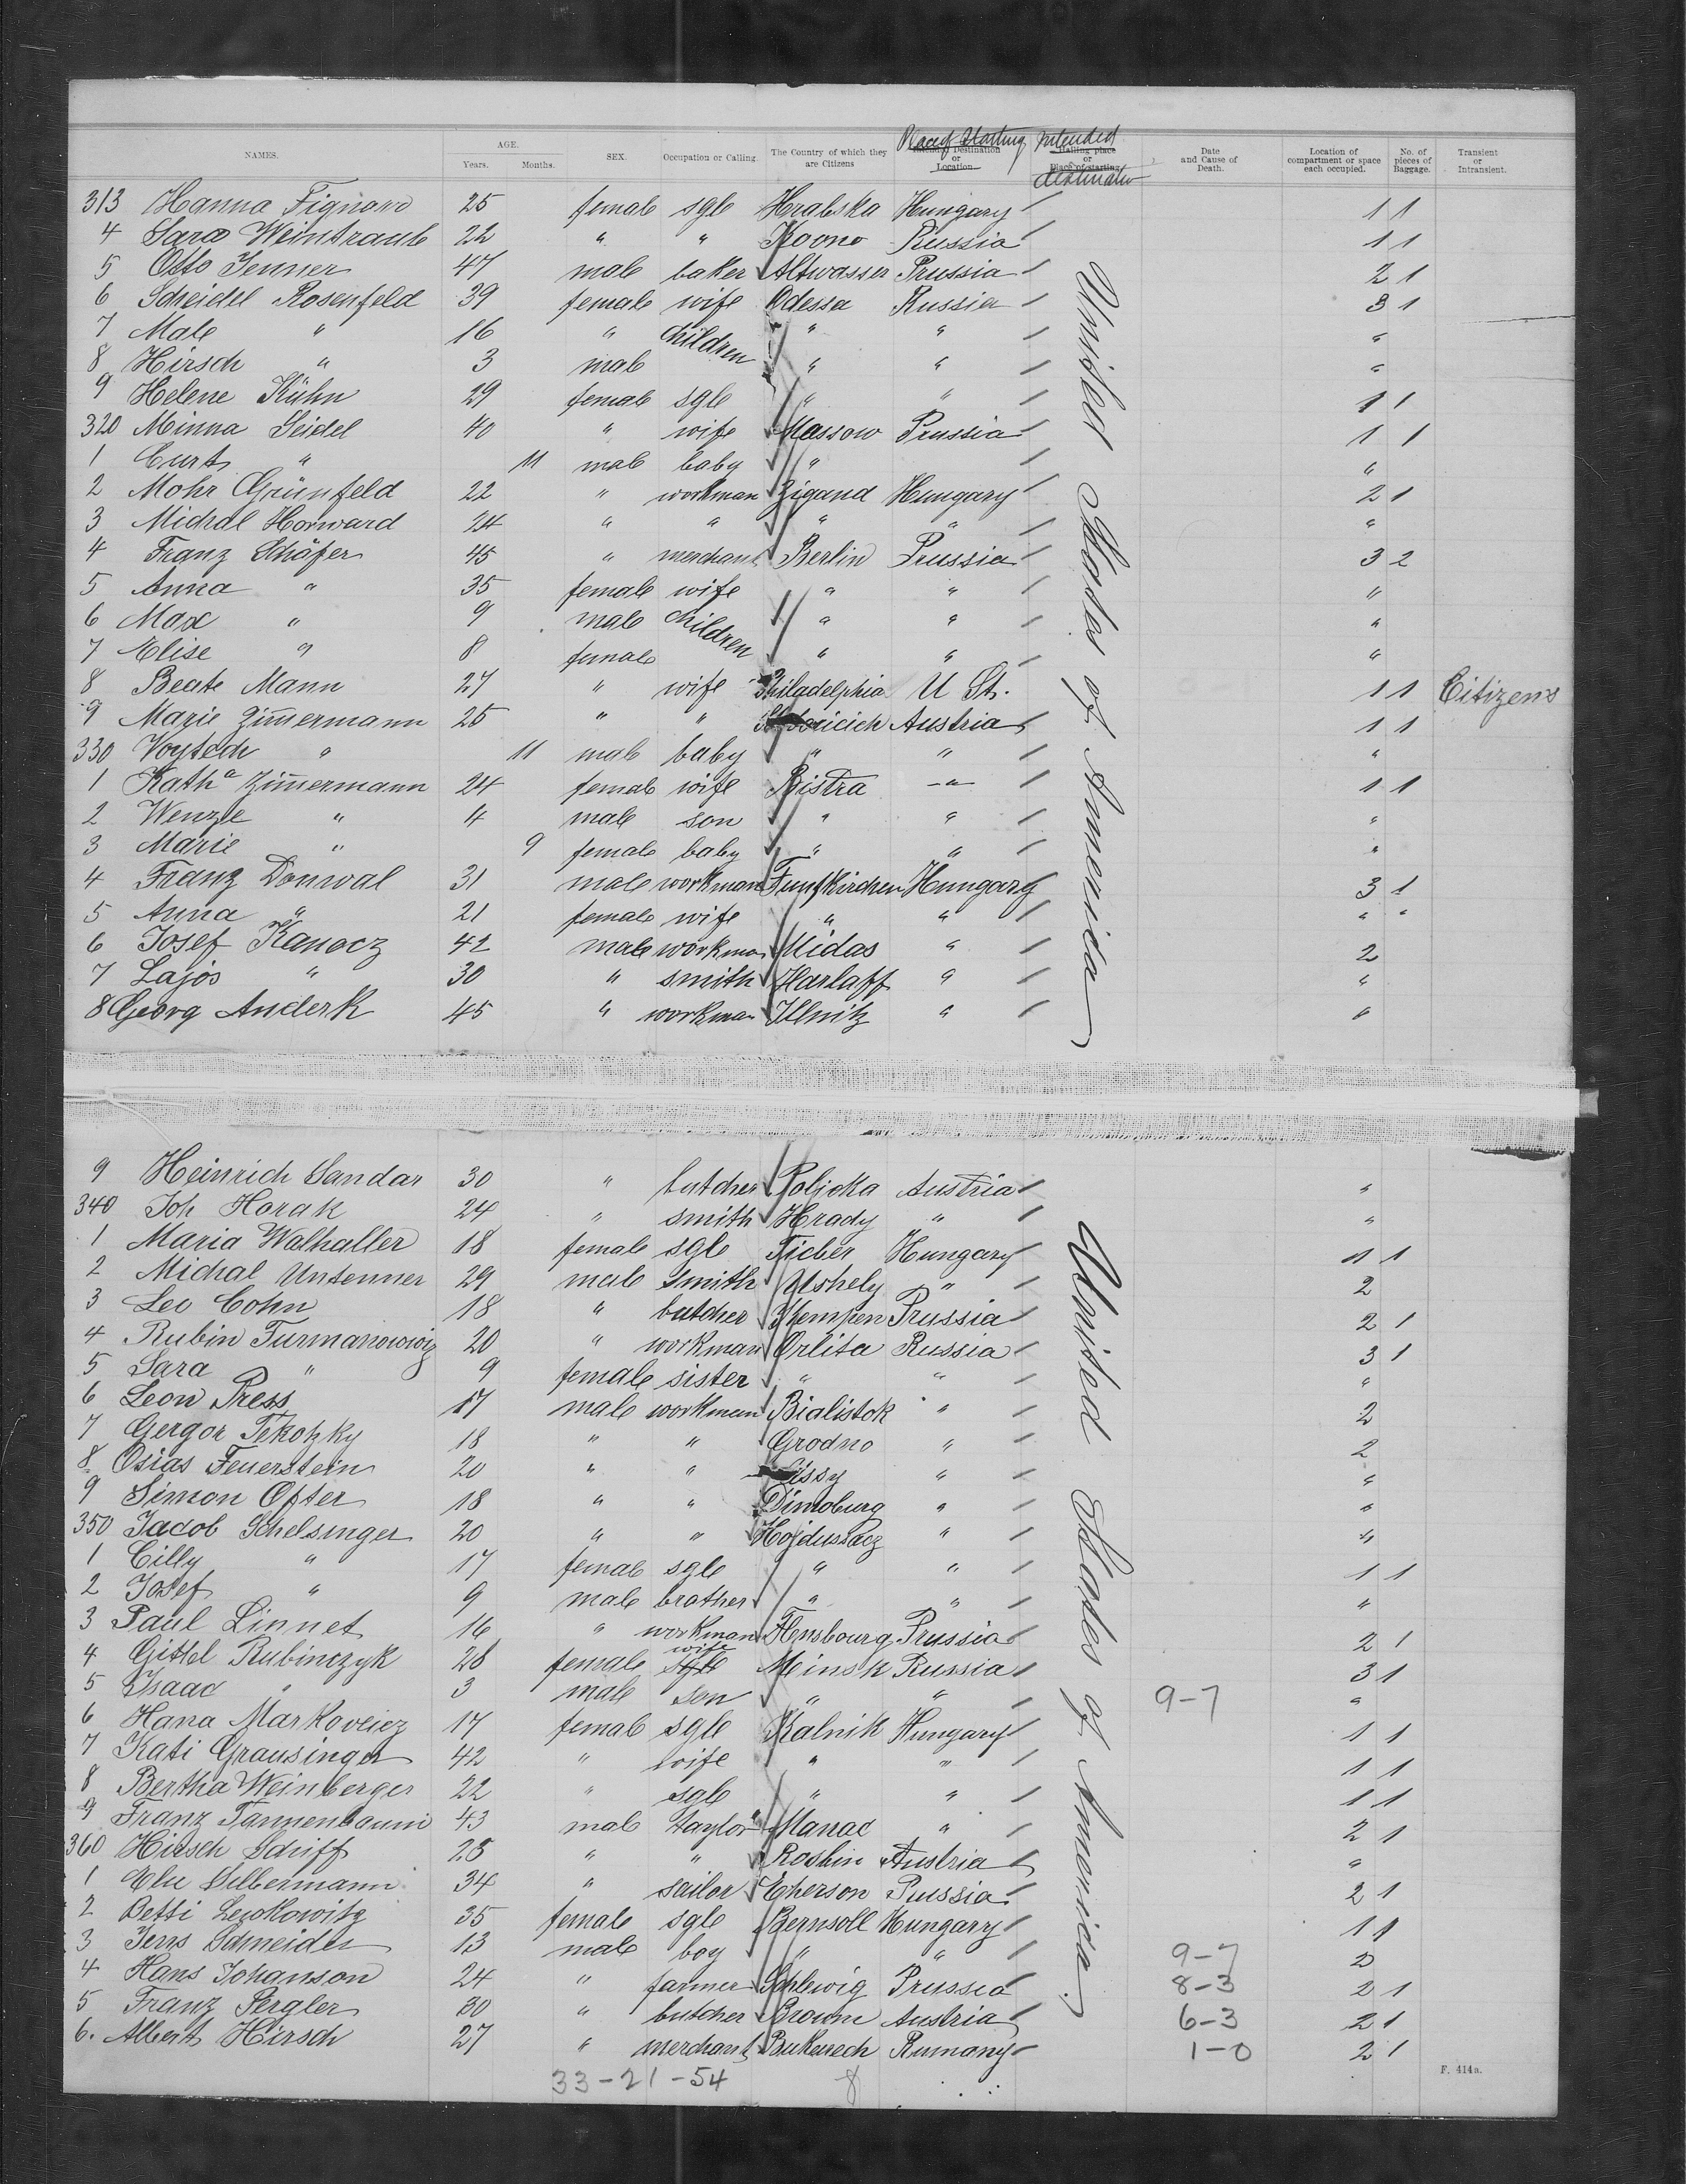 NAMES. AGE. Years. Months. SEX. Occupation or Calling. The Country of which they are Citizens Place of Starting Intended Destination or Location. Place of starting destination Date and Cause of Death. Location of compartment or space each occupied. No. of pieces of Baggage. Transient or Intransient.
313 Hanna Tignaro 25 female sgle Hrabska Hungary 1 1
4 Sara Weintraub 22 " " Kovno Russia 1 1
5 Otto Jenner 47 male baker Altwasser Prussia 2 1
6 Scheidel Rosenfeld 39 female wife Odessa Russia 3 1
7 Male " 16 " children " " "
8 Hirsch " 3 male " " "
9 Helene Kühn 29 female sgle " " 1 1
320 Minna Seidel 40 " wife Massow Prussia 1 1
1 Curt " 11 male baby " "
2 Mohr Grünfeld 22 " workman Zigand Hungary 2 1
3 Michal Horward 24 " " " " "
4 Franz Schäfer 45 " merchant Berlin Prussia 3 2
5 Anna " 35 female wife " " "
6 Max " 9 male children " " "
7 Elise " 8 female " " "
8 Beate Mann 27 " wife Philadelphia U St. 1 1 Citizens
9 Marie Zimmermann 25 " " Austria 1 1
330 Voytech " 11 male baby " " "
1 Katha Zimmermann 24 female wife Bistra " 1 1
2 Wenzle " 4 male son " " "
3 Marie " 9 female baby " " "
4 Franz Donwal 31 male workman Funfkirchen Hungary 3 1
5 Anna " 21 female wife " " " "
6 Josef Kanocz 42 male workman Midas " 2
7 Lajos " 30 " smith Harlaff " "
8 Georg Anderk 45 " workman Illnitz " "
United States of America
9 Heinrich Sandar 30 " butcher Policka Austria "
340 Joh Horak 24 " smith Hrady " "
1 Maria Walhaller 18 female sgle Ticber Hungary 1 1
2 Michal Untenner 29 male smith Ushely " 2
3 Leo Cohn 18 " butcher Kempen Prussia 2 1
4 Rubin Turmanowicz 20 " workman Orlita Russia 3 1
5 Sara " 9 female sister " " "
6 Leon Press 17 male workman Bialistok " 2
7 Gergor Tekotzky 18 " " Grodno " 2
8 Osias Feuerstein 20 " " " "
9 Simon Ofter 18 " " Dinoburg " "
350 Jacob Schelsinger 20 " " Hojdussacz " "
1 Cilly " 17 female sgle " " 1 1
2 Josef " 9 male brother " " "
3 Paul Linnet 16 " workman Flensbourg Prussia 2 1
4 Gittel Rubinczyk 28 female wife Minsk Russia 3 1
5 Isaac " 3 male son " " 9-7 "
6 Hana Markoveicz 17 female sgle Kalnik Hungary 1 1
7 Kati Grausinger 42 " wife " " 1 1
8 Bertha Weinberger 22 " sgle " " 1 1
9 Franz Tannenbaum 43 male taylor Manac " 2 1
360 Hirsch Schiff 28 " " Roslin Austria "
1 Elie Silbermann 34 " sailor Cherson Russia 2 1
2 Betti Lewkowitz 35 female sgle Bernsoll Hungary 1 1
3 Jens Schneider 13 male boy " " 9-7 2
4 Hans Johanson 24 " farmer Schlewig Prussia 8-3 2 1
5 Franz Pergler 30 " butcher Brown Austria 6-3 2 1
6. Albert Hirsch 27 " merchant Bukarech Rumany 1-0 2 1
United States of America
33-21-54 8
F. 414a.